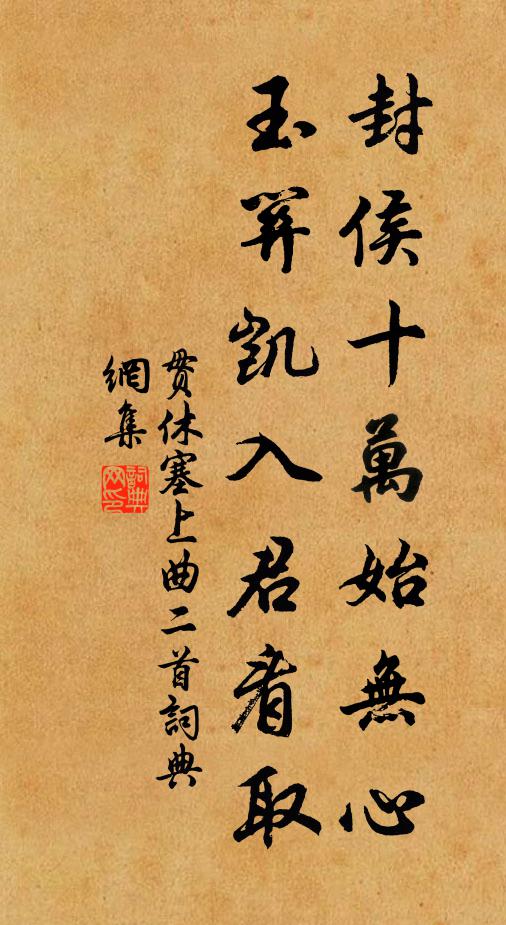 封侯十萬始無心
玉關凱入君看取
貫休塞上曲二首詞典
網集
詞典
网印